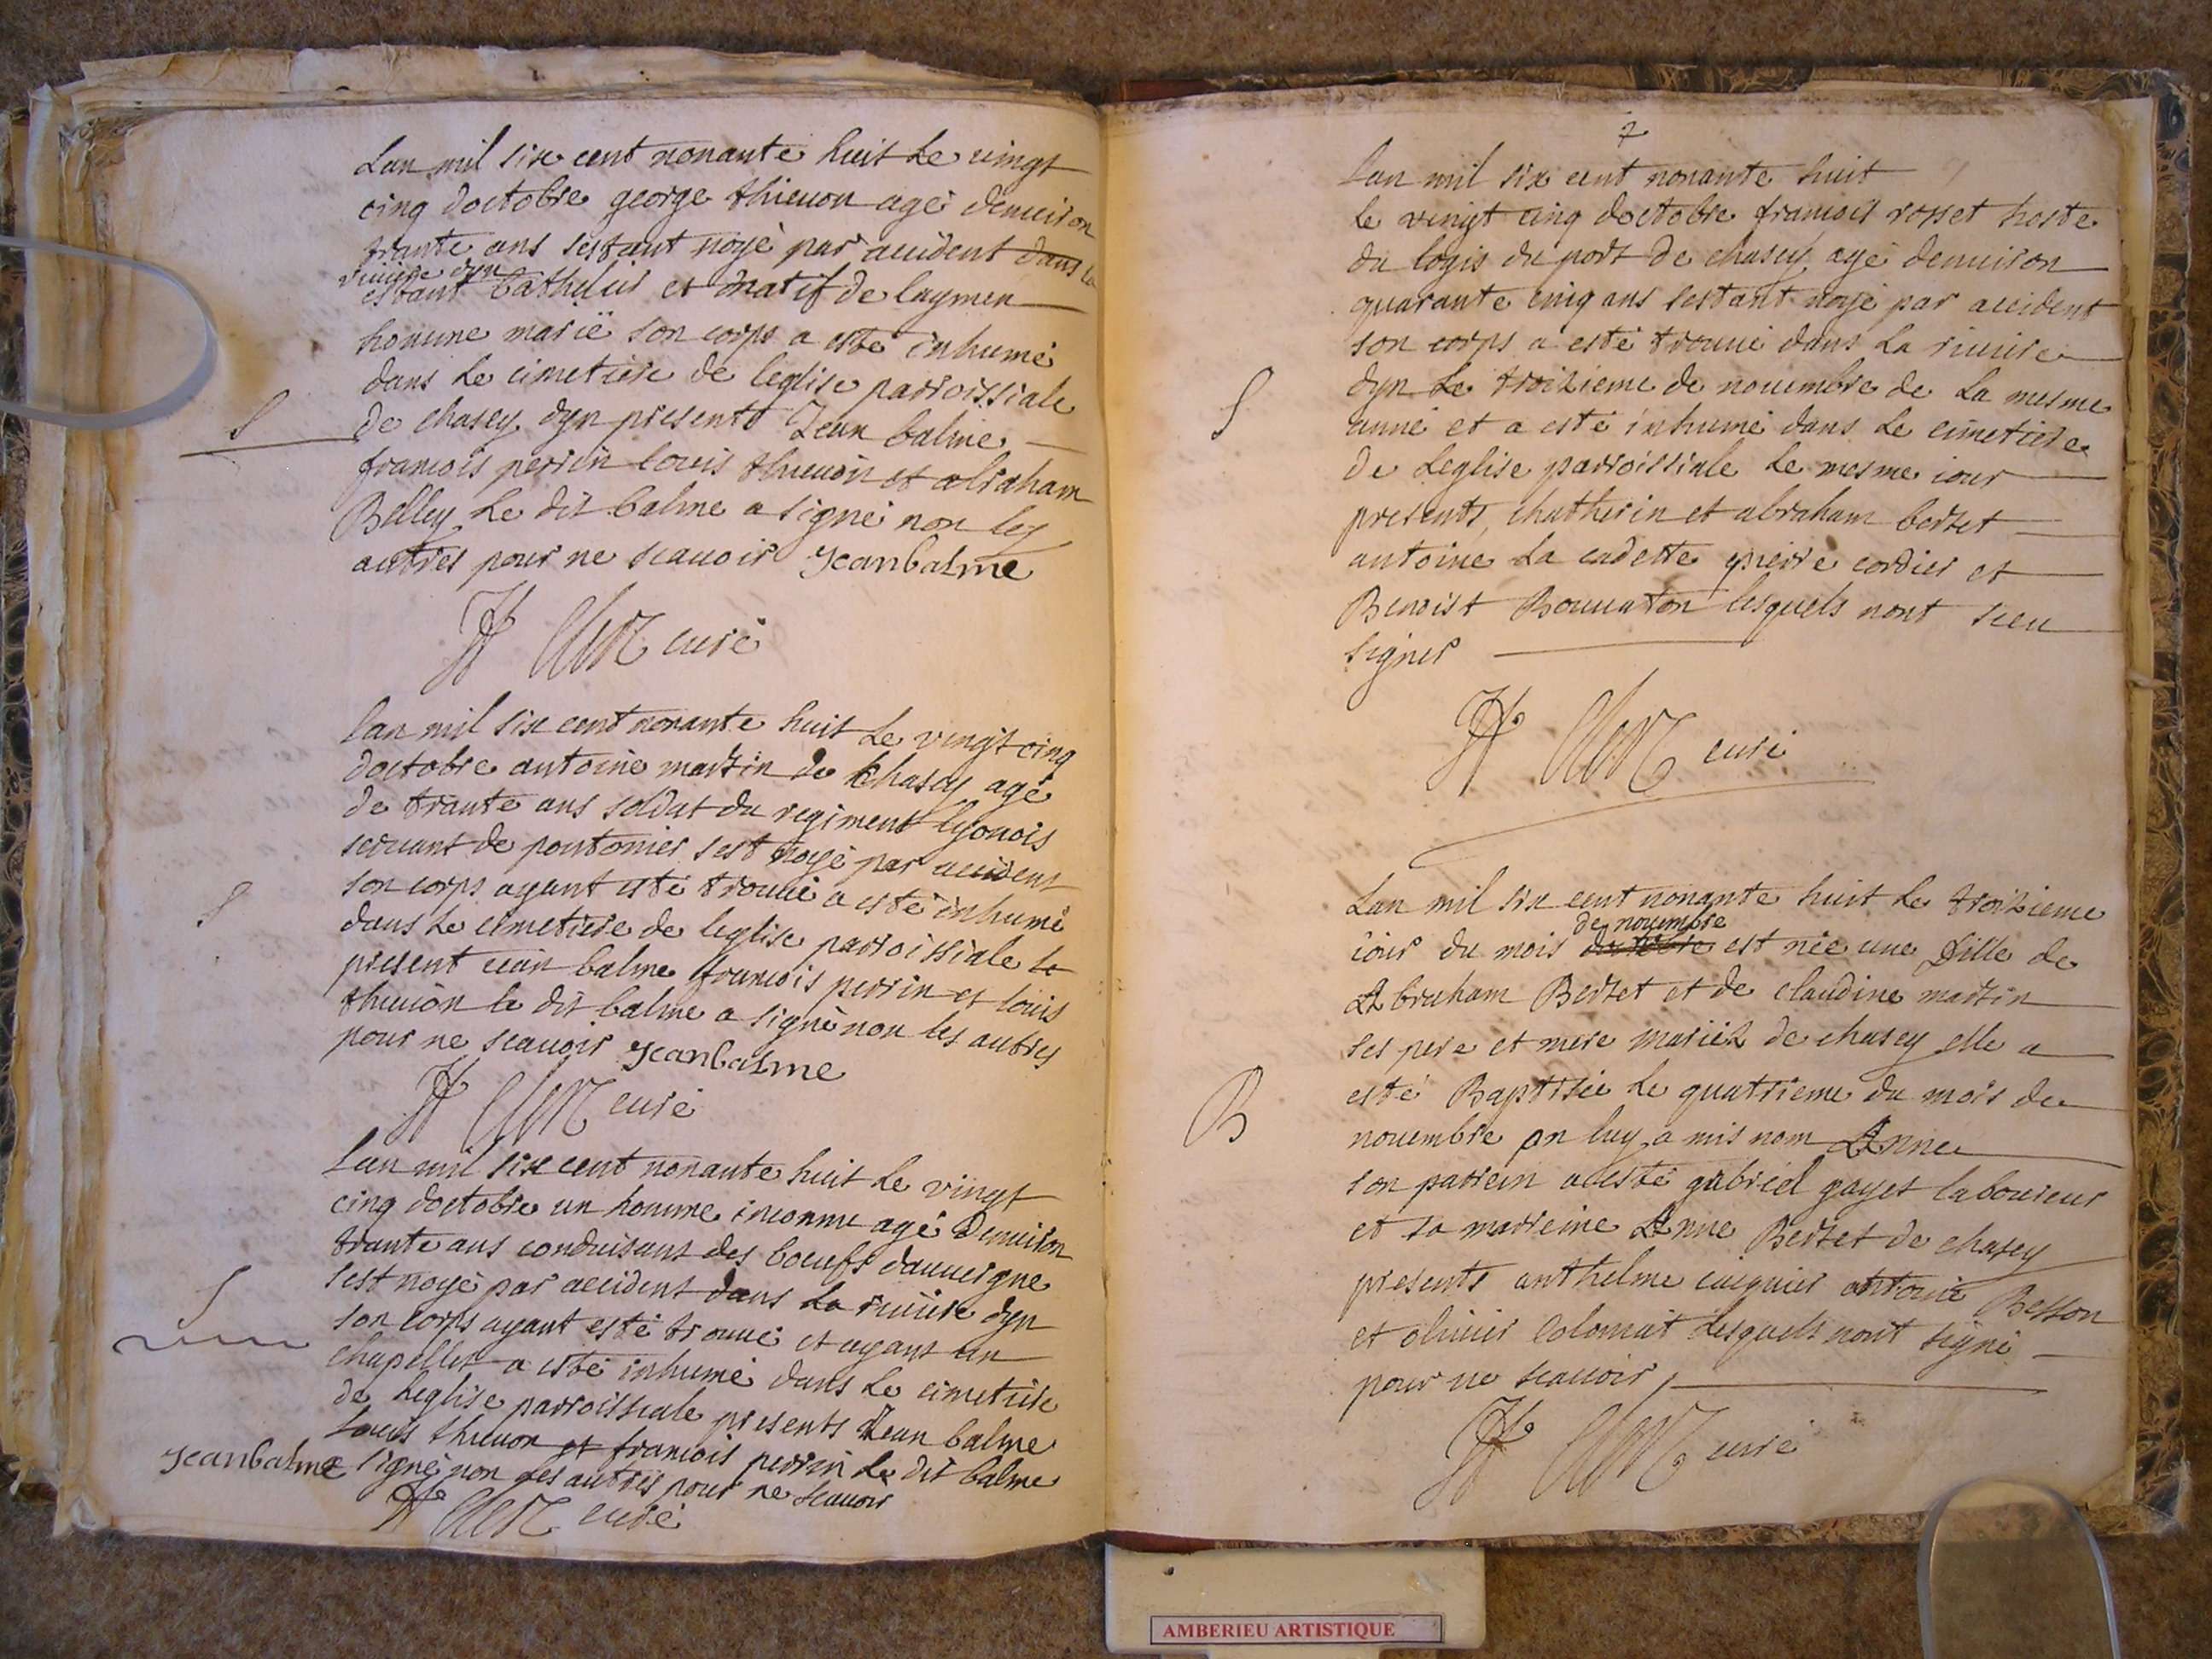 Lan mil six cent nonante huit Le vingt
cinq doctobre george thieuon agé denuiron
trante ans sestant noyé par accident dans la
riuiere dyn
estant batheluir et natif de laymen
homme marié son corps a esté inhumé
dans Le cimetiere de leglise parroissiale
S
de chasey dyn presents Jean balme
francois perrin louis thieuon et abraham
Belley Le dit balme a signé non les
autres pour ne scauoir Jeanbalme
curé
lan mil six cent nonante huit Le vingt cinq
doctobre antoine martin de Chasey agé
de trante ans soldat du regiment lyonois
seruant de pontonier sest noyé par accident
son corps ayant esté trouué a esté inhumé
S
dans Le cimetiere de leglise parroissiale le
present iean balme francois perrin et louis
thieuon le dit balme a signé non les autres
pour ne scauoir Jeanbalme
curé
Lan mil six cent nonante huit Le vingt
cinq doctobre un homme inconnu agé denuiron
trante ans conduisant des boeufs dauuergne
sest noyé par accident dans La riuiere dyn
S
son corps ayant esté trouué et ayant un
chapellet a esté inhumé dans Le cimetiere
de Leglise parroissiale presents Jean balme
Louis thieuon et francois perrin Le dit balme
Jeanbalme signé non les autres pour ne scauoir
curé
7
Lan mil six cent nonante huit
Le vingt cinq doctobre francois rosset hoste
du logis du port de chasey agé denuiron
quarante cinq ans sestant noyé par accident
son corps a esté trouué dans La riuiere
dyn Le troizieme de nouembre de La mesme
S
année et a esté inhumé dans Le cimetiere
de Leglise parroissiale Le mesme iour
presents, chatherin et abraham bertet
antoine La cadette pierre cordier et
Benoist Bouuaton lesquels nont sceu
signer
curé
Lan mil six cent nonante huit Le troizieme
de nouembre
iour du mois est née une fille de
Abraham Bertet et de claudine martin
ses pere et mere mariez de chasey elle a
B
esté Baptisée Le quatrieme du mois de
nouembre on luy a mis nom Anne
son parrein a esté gabriel gayet laboureur
et sa marreine Anne Bertet de chasey
presents anthelme antoine Besson
et oliuier Colomat lesquels nont signé
pour ne scauoir
curé
AMBERIEU ARTISTIQUE